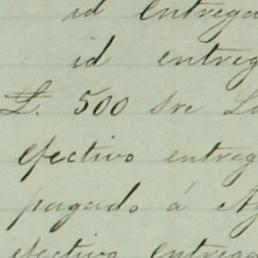 id Entrega
id entreg
£. 500 Sre Lo
efectivo entreg
pagado á Ag
efectivo Entrega